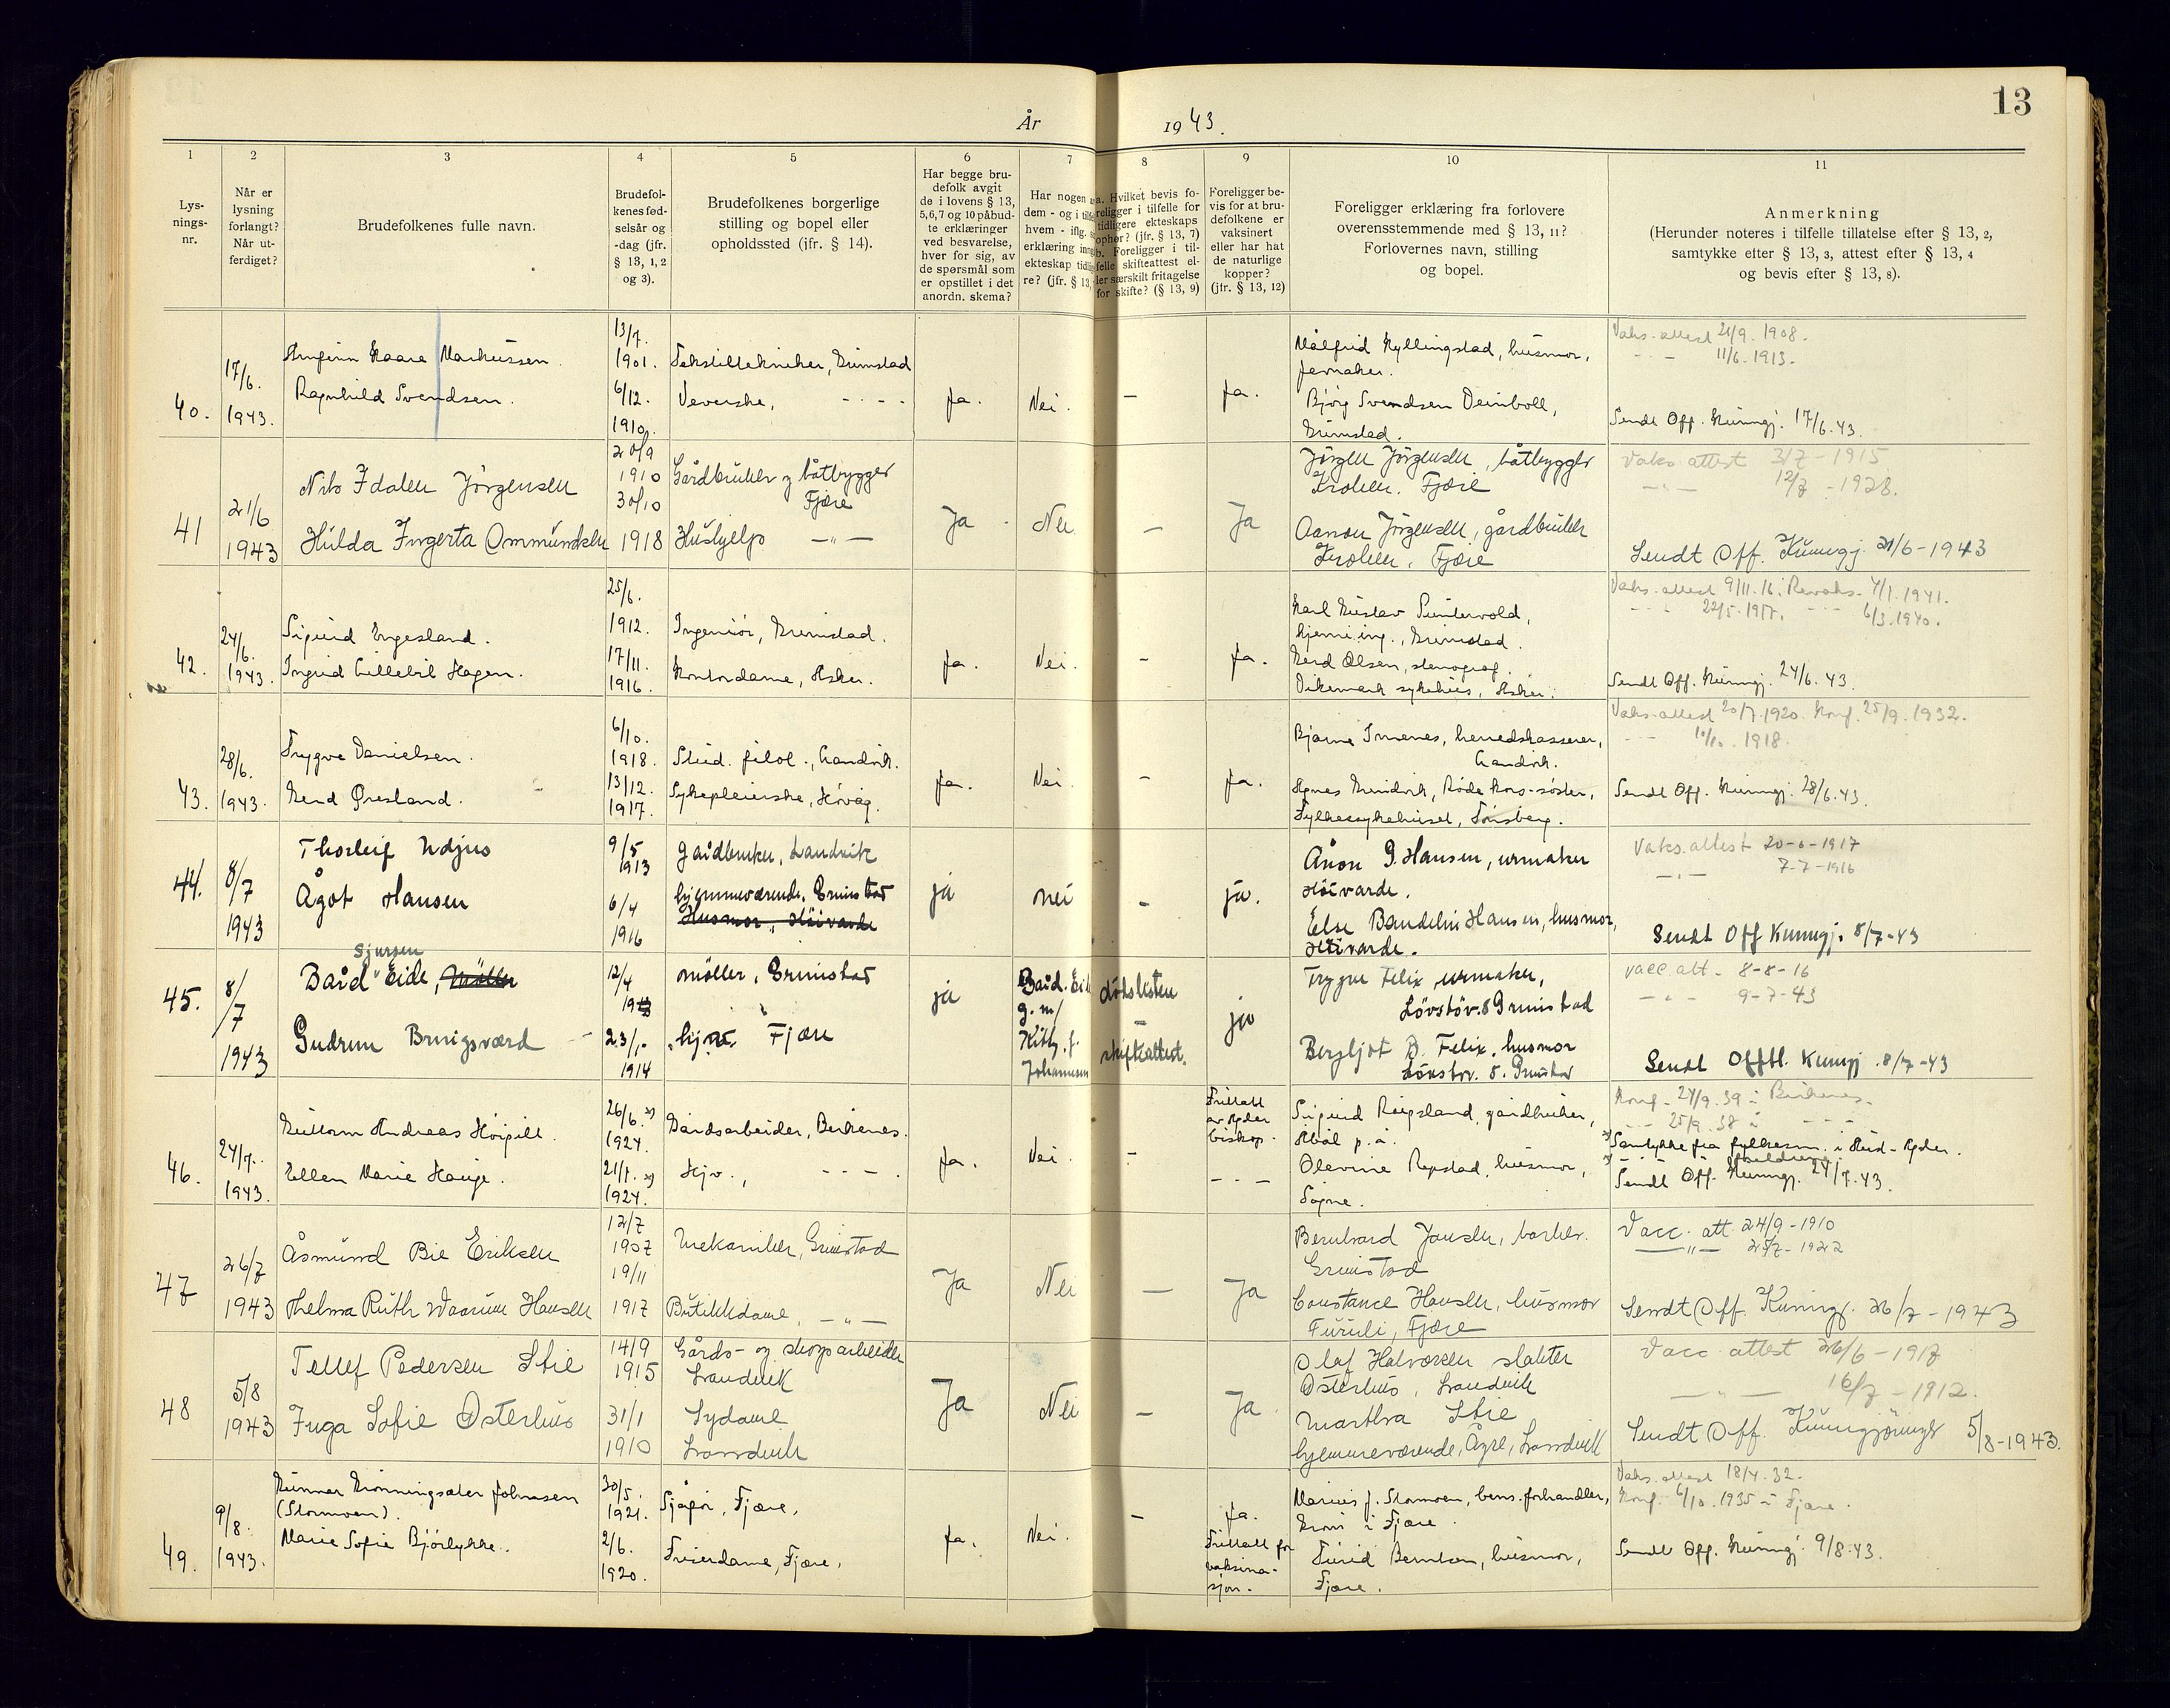 13
År 1943.
1
2
3
4
5
6
7
8
9
10
11
Lys-
nings-
nr.
Når er
lysning
forlangt?
Når ut-
ferdiget?
Brudefolkenes fulle navn.
Brudefol-
kenes fød-
selsår og
-dag (jfr.
§ 13, 1, 2
og 3).
Brudefolkenes borgerlige
stilling og bopel eller
opholdssted (ifr. § 14).
Har begge bru-
defolk avgit
de i lovens § 13,
5,6,7 og 10 påbud-
te erklæringer
ved besvarelse,
hver for sig, av
de spørsmål som
er opstillet i det
anordn. skema?
Har nogen a
dem - og i tilf
hvem - iflg.
erklæring inng
ekteskap tidlig
re? (jfr. § 13,
a. Hvilket bevis fo-
religger i tilfelle for
tidligere ekteskaps
ophør? (jfr. § 13, 7)
b. Foreligger i til-
felle skifteattest el-
ler særskilt fritagelse
for skifte? (§ 13, 9)
Foreligger be-
vis for at bru-
defolkene er
vaksinert
eller har hat
de naturlige
kopper?
(jfr. § 13, 12)
Foreligger erklæring fra forlovere
overensstemmende med § 13, 11?
Forlovernes navn, stilling
og bopel.
Anmerkning
(Herunder noteres i tilfelle tillatelse efter § 13, 2,
samtykke etter § 13, 3, attest efter § 13, 4
og bevis efter § 13, 8).
40.
17/6.
1943.
Arnfinn Kaare Markussen.
Ragnhild Svendsen.
13/7.
1901.
6/12.
1910.
Tekstiltekniker, Grimstad
Veverske, - - - -
Ja.
Nei.
-
Ja.
Valfrid Kyllingstad, husmor,
Jernaker.
Bjørg Svendsen Deinboll,
Grimstad.
Vaks. attest 21/9. 1908.
- - - 11/6. 1913.
Sendt Off. Kunngj. 17/6. 43.
41
21/6
1943
Nils Idalen Jörgensen
Hulda Ingerta Ommundsen
20/9
1910
30/10
1918
Gårdbruker og båtbygger
Fjære
Hushjelp - " -
Ja
Nei
-
Ja
Jörgen Jörgensen, båtbygger
Kroken. Fjære
Aanon Jörgensen, gårdbruker
Kroken, Fjære
Vaks. attest 3/7 - 1915
- " - 12/7 - 1928.
Sendt Off. Kunngj. 21/6 - 1943
42.
24/6.
1943.
Sigurd Engesland.
Ingrid Lillebil Hagen.
25/6.
1912.
17/11.
1916.
Ingeniör, Grimstad.
Kontordame, Asker.
Ja.
Nei.
-
Ja.
Karl Gustav Sundervold,
kjemi ing., Grimstad.
Gerd Olsen, stenograf.
Dikemark sykehus, Asker.
Vaks. attest 9/11. 16. Revaks. 7/1. 1941.
- - - 22/5. 1917. - - - 6/3. 1940.
Sendt Off. Kunngj. 24/6. 43.
43.
28/6.
1943.
Trygve Danielsen.
Gerd Øresland.
6/10.
1918.
13/12.
1917.
Stud. filol., Landvik.
Sykepleierske, Hövåg.
Ja.
Nei.
-
Ja.
Bjarne Imenes, herredskasserer,
Landvik.
Agnes Grundvik, Röde Kors-söster,
Fylkessykehuset, Tönsberg.
Vaks. attest 20/7. 1920. Konf. 25/9. 1932.
- - - 10/10. 1918.
Sendt Off. Kunngj. 28/6. 43.
44.
8/7
1943
Thorleif Udjus
Ågot Hansen
9/5
1913
6/4
1916
gårdbruker, Landvik
hjemmeværende, Grimstad
Husmor, Höivarde
ja
nei
-
ja.
Ånon G. Hansen, urmaker
Höivarde.
Else Bandelin Hansen, husmor,
Höivarde.
Vaks. attest 20-6-1917
- " - 7-7-1916
Sendt Off Kunngj. 8/7-43
45.
8/7
1943
Sjursen
Bård Eide, Möller
Gudrun Bringsværd
12/4
1913
23/10
1914
möller, Grimstad
hjv. Fjære
ja
Bård. Eide
g. m/
Kitty. f.
Johannesen
dödslisten
-
skifteattest.
ja
Trygve Felix, urmaker,
Lövstöv. 8 Grimstad
Bergljot D. Felix, husmor
Lövstv. 8. Grimstad
Vacc. att. - 8-8-16
- " - 9-7-43
Sendt Offtl. Kunngj. 8/7-43
46.
24/7.
1943.
Guttorm Andreas Höigilt.
Ellen Marie Hauge.
26/6.
1924.
21/1.
1924.
Gårdsarbeider, Birkenes.
Hjv., - - -
Ja.
Nei.
-
Fritatt
av Agder
biskop.
- - -
Sigurd Reigsland, gårdbruker,
Åbål p. å.
Olevine Repstad, husmor,
Sögne.
Konf. 24/9. 39 i Birkenes.
- - 25/9. 38 i - - -
Samtykke fra fylkesm. i Aust-Agder.
- - - foreldrene.
Sendt Off. Kunngj. 24/7. 43.
47
26/7
1943
Åsmund Bie Eriksen
Thelma Ruth Waarum Hansen
12/7
1907
19/11
1917
Mekaniker, Grimstad
Butikkdame, - " -
Ja
Nei
-
Ja
Bernhard Jansen, barber.
Grimstad
Constance Hansen, husmor
Furuli, Fjære
Vacc. att. 24/9 - 1910
- " - 25/7 - 1922
Sendt Off. Kunngj. 26/7 - 1943
48
5/8
1943
Tellef Pedersen Stie
Inga Sofie Østerhus
14/9
1915
31/1
1910
Gårds- og skogsarbeider
Landvik
Sydame
Landvik
Ja
Nei
-
Ja
Olaf Halvorsen slakter
Østerhus, Landvik
Martha Stie
hjemmeværende, Agre, Landvik
Vacc. attest 26/6 - 1917
- " - 16/7 - 1912.
Sendt Off. Kunngjöringer 5/8-1943.
49.
9/8.
1943.
Gunnar Grönningsæter Johnsen
(Stormoen).
Marie Sofie Björlykke.
30/5.
1921.
2/6.
1920.
Sjåför, Fjære,
Friserdame, Fjære,
Ja.
Nei.
-
Ja.
Fritatt for
vaksina-
sjon.
Marius J. Stormoen, bens. forhandler,
i Fjære.
Turid Berntsen, husmor,
Fjære.
Vaks. attest 18/4. 32.
Konf. 6/10. 1935 i Fjære.
Sendt Off. Kunngj. 9/8. 43.